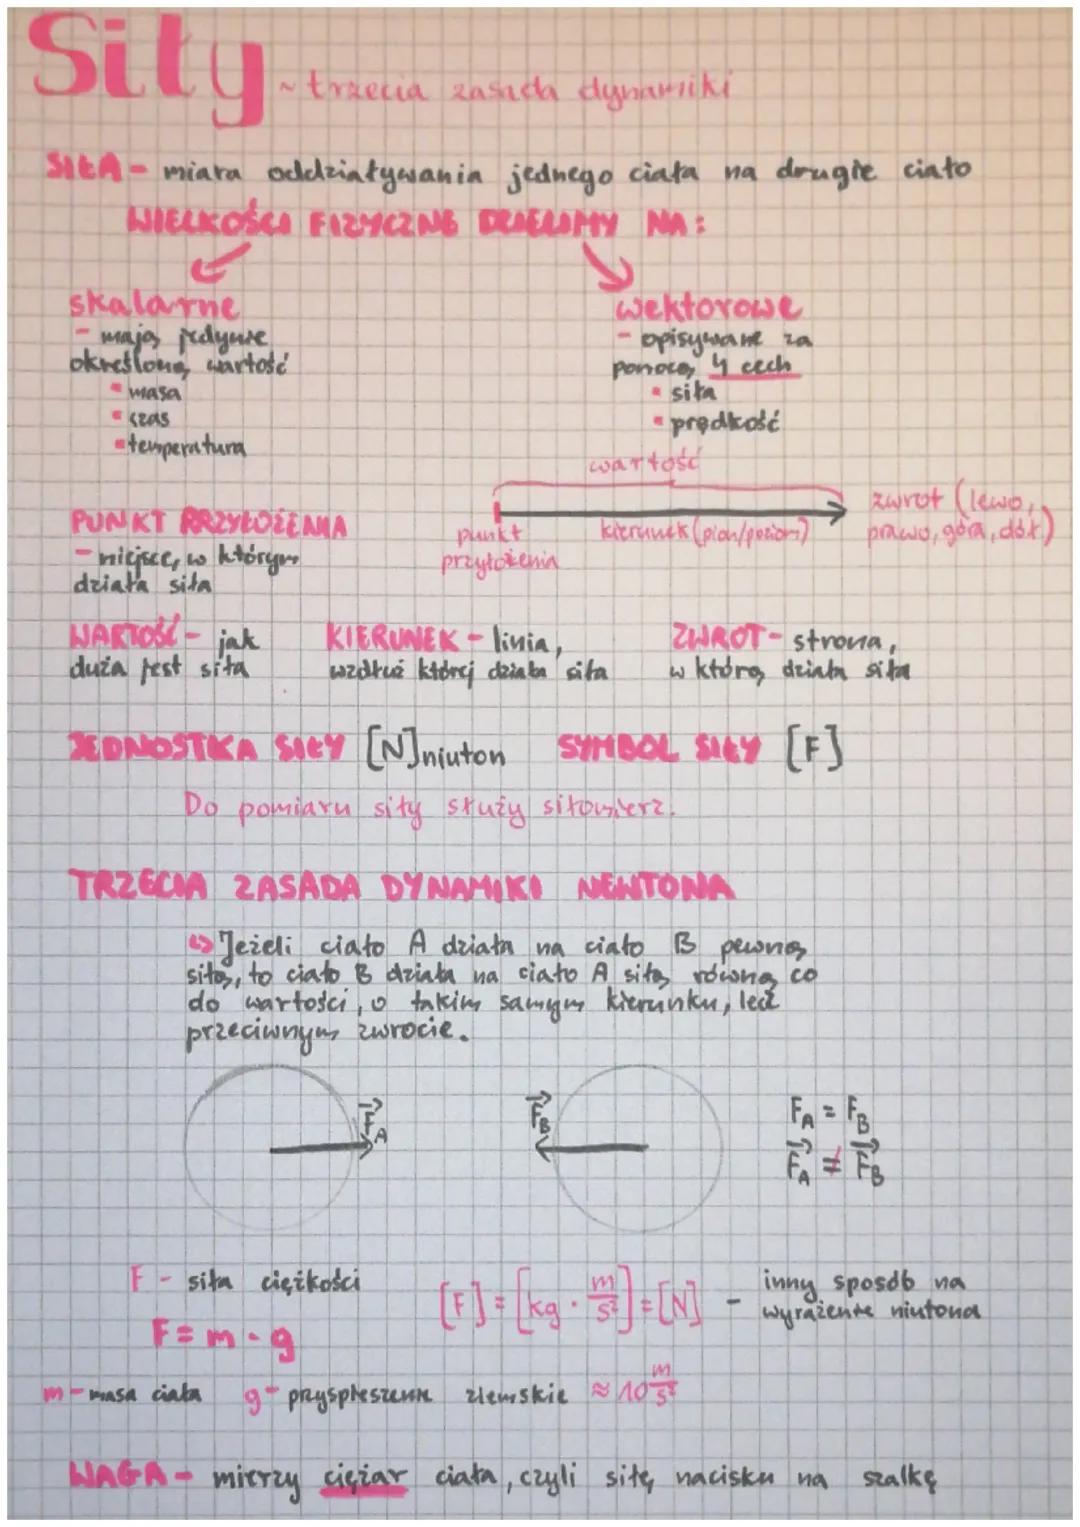 Siły ~ trzecia zasada dynamiki
SIŁA - miara oddziaływania jednego ciała na drugie ciało
WIELKOŚCI FIZYCZNE DZIELIMY NA:
skalarne
- mają jedynie
określoną wartość
• masa
• czas
• temperatura
wektorowe
- opisywane za
pomocą 4 cech
• siła
• prędkość
wartość
punkt
przyłożenia
kierunek (pion/poziom)
zwrot (lewo,
prawo, góra, dół)
PUNKT PRZYŁOŻENIA
- miejsce, w którym
działa siła
WARTOŚĆ - jak
duża jest siła
KIERUNEK - linia,
wzdłuż której działa siła
ZWROT - strona,
w którą działa siła
JEDNOSTKA SIŁY [N] niuton SYMBOL SIŁY [F]
Do pomiaru siły służy siłomierz.
TRZECIA ZASADA DYNAMIKI NEWTONA
↳ Jeżeli ciało A działa na ciało B pewną
siłą, to ciało B działa na ciało A siłą równą co
do wartości, o takim samym kierunku, lecz
przeciwnym zwrocie.
F⃗A
F⃗B
FA = FB
F⃗A ≠ F⃗B
F - siła ciężkości
F = m · g
[F] = [kg · m/s²] = [N] - inny sposób na
wyrażenie niutona
m - masa ciała g - przyspieszenie ziemskie ≈ 10 m/s²
WAGA - mierzy ciężar ciała, czyli siłę nacisku na szalkę